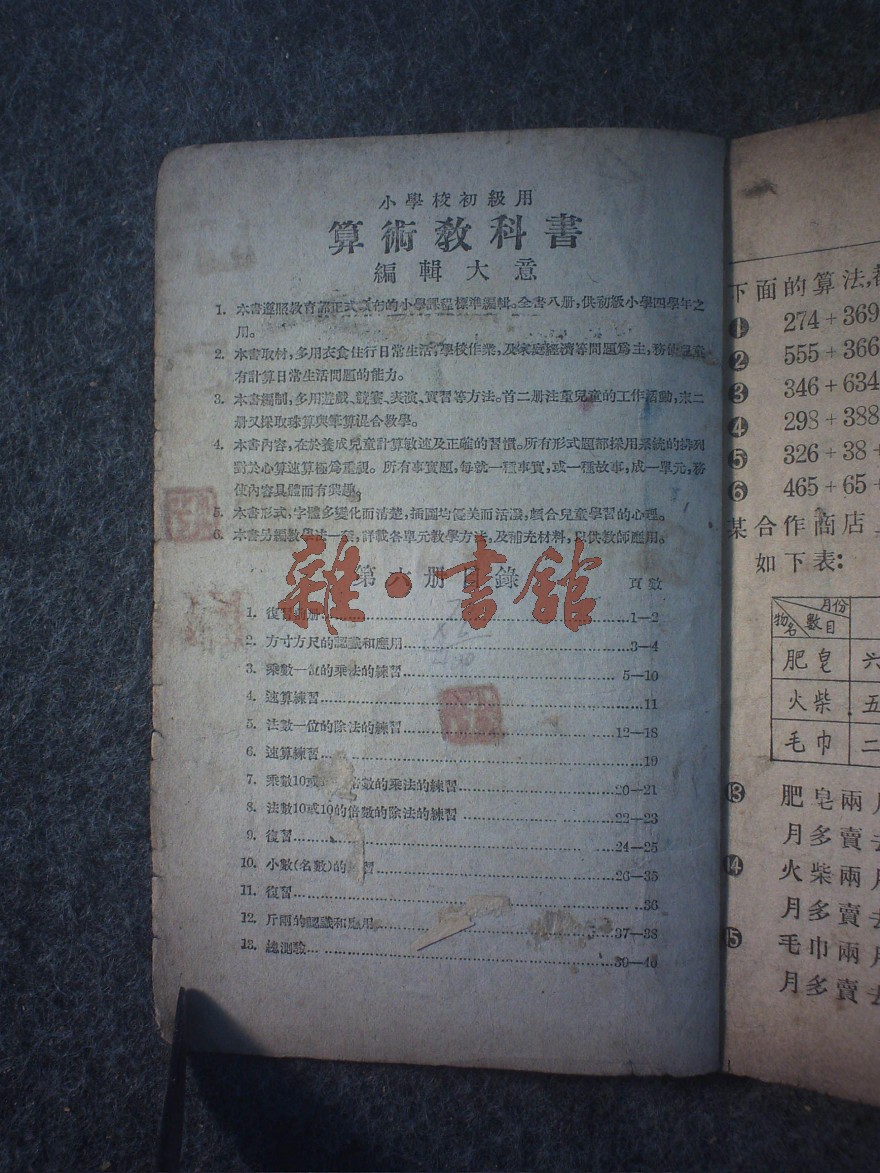 小學校初級用
算術教科書
編輯大意
1. 本書遵照教育部正式頒布的小學課程標準編輯。全書八册,供初級小學四學年之
用。
2. 本書取材,多用衣食住行日常生活,學校作業,及家庭經濟等問題爲主,務使兒童
有計算日常生活問題的能力。
3. 本書編制,多用遊戲、競賽、表演、實習等方法。首二册注重兒童的工作活動,末二
册又採取珠算與筆算混合教學。
4. 本書內容,在於養成兒童計算敏速及正確的習慣。所有形式題都採用系統的排列
對於心算速算極爲重視。所有事實題,每就一種事實,或一種故事,成一單元,務
使內容具體而有興趣。
5. 本書形式,字體多變化而清楚,插圖均優美而活潑,頗合兒童學習的心理。
6. 本書另編教學法一册,詳載各單元教學方法,及補充材料,以供教師應用。
雜·書館
第六册目錄
頁數
1. 復習前册 1—2
2. 方寸方尺的認識和應用 3—4
3. 乘數一位的乘法的練習 5—10
4. 速算練習 11
5. 法數一位的除法的練習 12—18
6. 速算練習 19
7. 乘數10或 倍數的乘法的練習 20—21
8. 法數10或10的倍數的除法的練習 22—23
9. 復習 24—25
10. 小數(名數)的 習 26—35
11. 復習 36
12. 斤兩的認識和應用 37—38
13. 總測驗 39—40
下面的算法,都
❶ 274+369
❷ 555+366
❸ 346+634
❹ 298+388
❺ 326+38+
❻ 465+65+
某合作商店
如下表:
月份
數目
物名
肥皂 六
火柴 五
毛巾 二
⓭ 肥皂兩月
月多賣去
⓮ 火柴兩月
月多賣去
⓯ 毛巾兩月
月多賣去